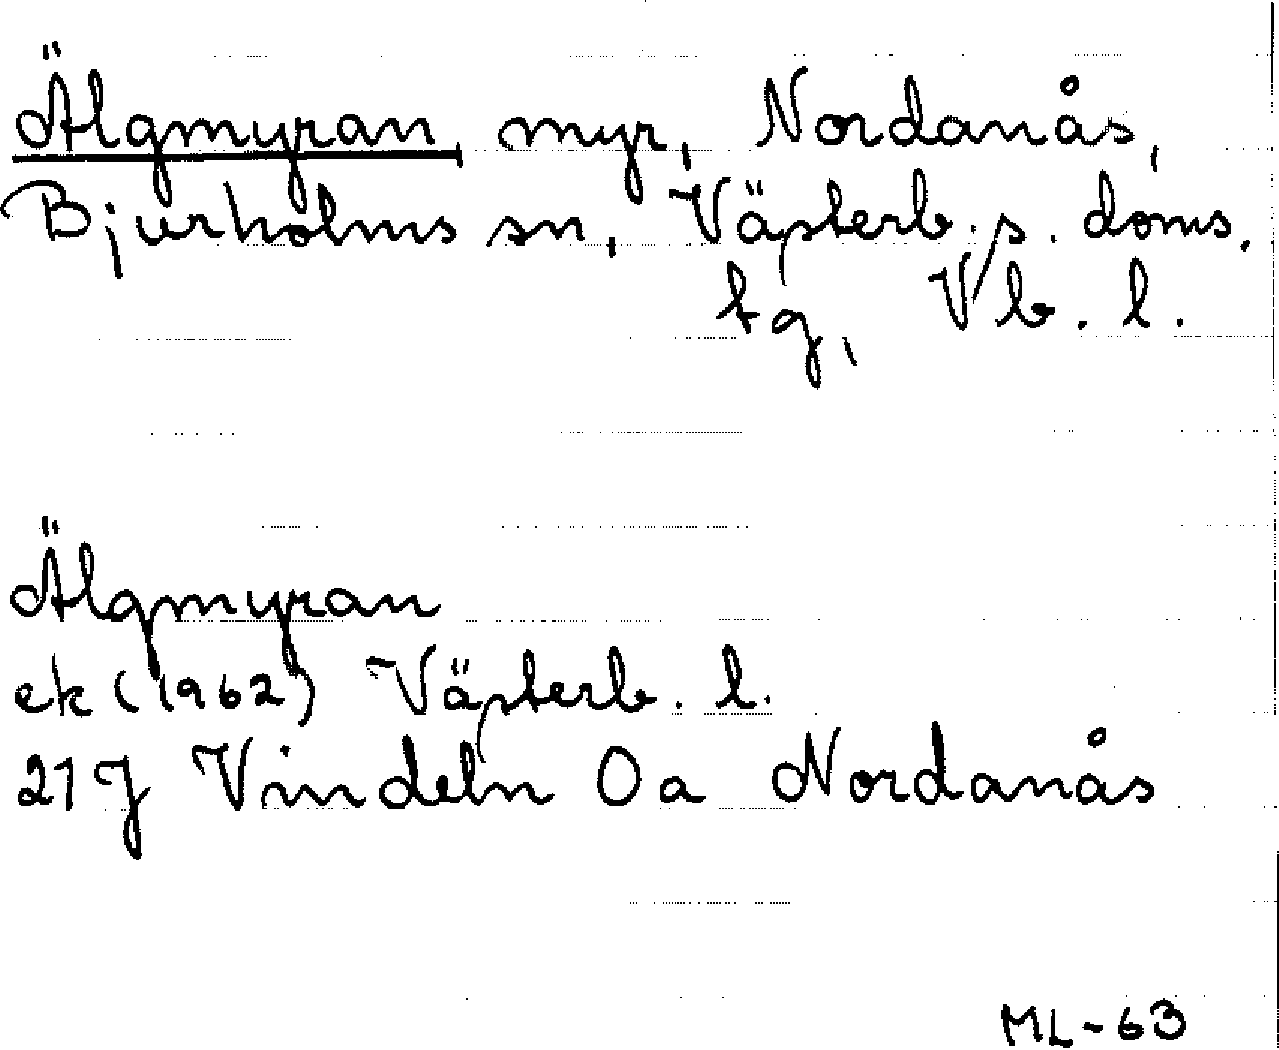 Älgmyran myr, Nordanås,
Bjurholms sn, Västerb. s. doms.
tg, Vb. l.
Älgmyran
ek (1962) Västerb. l.
21 J Vindeln 0a Nordanås
ML-63